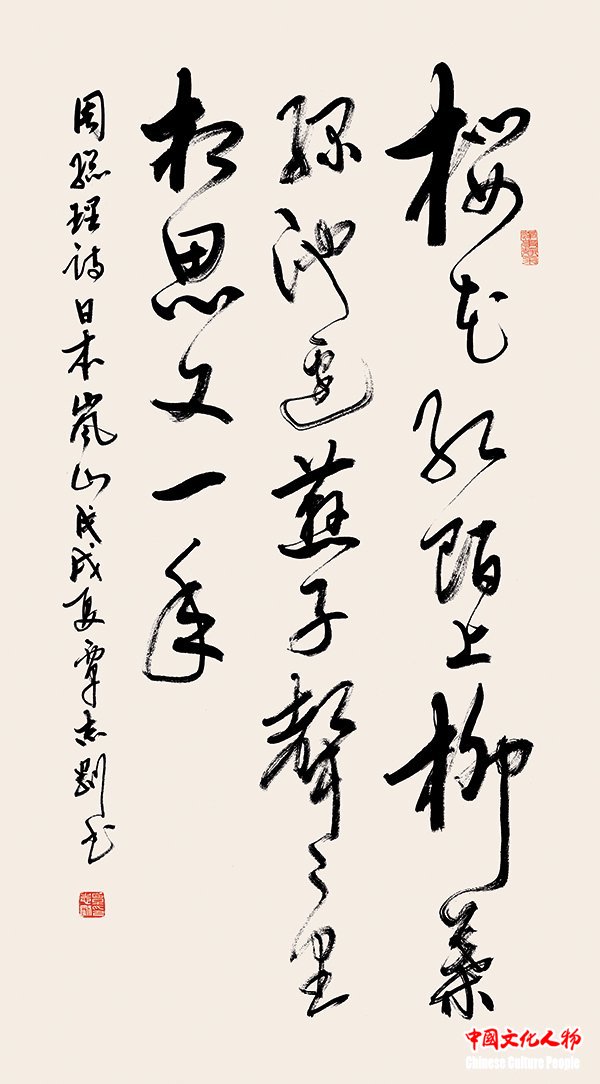 桜花红陌上柳葉
绿池边燕子聲々里
相思又一年
周總理诗日本嵐山戊戌夏覃志剛书
中國文化人物
Chinese Culture People